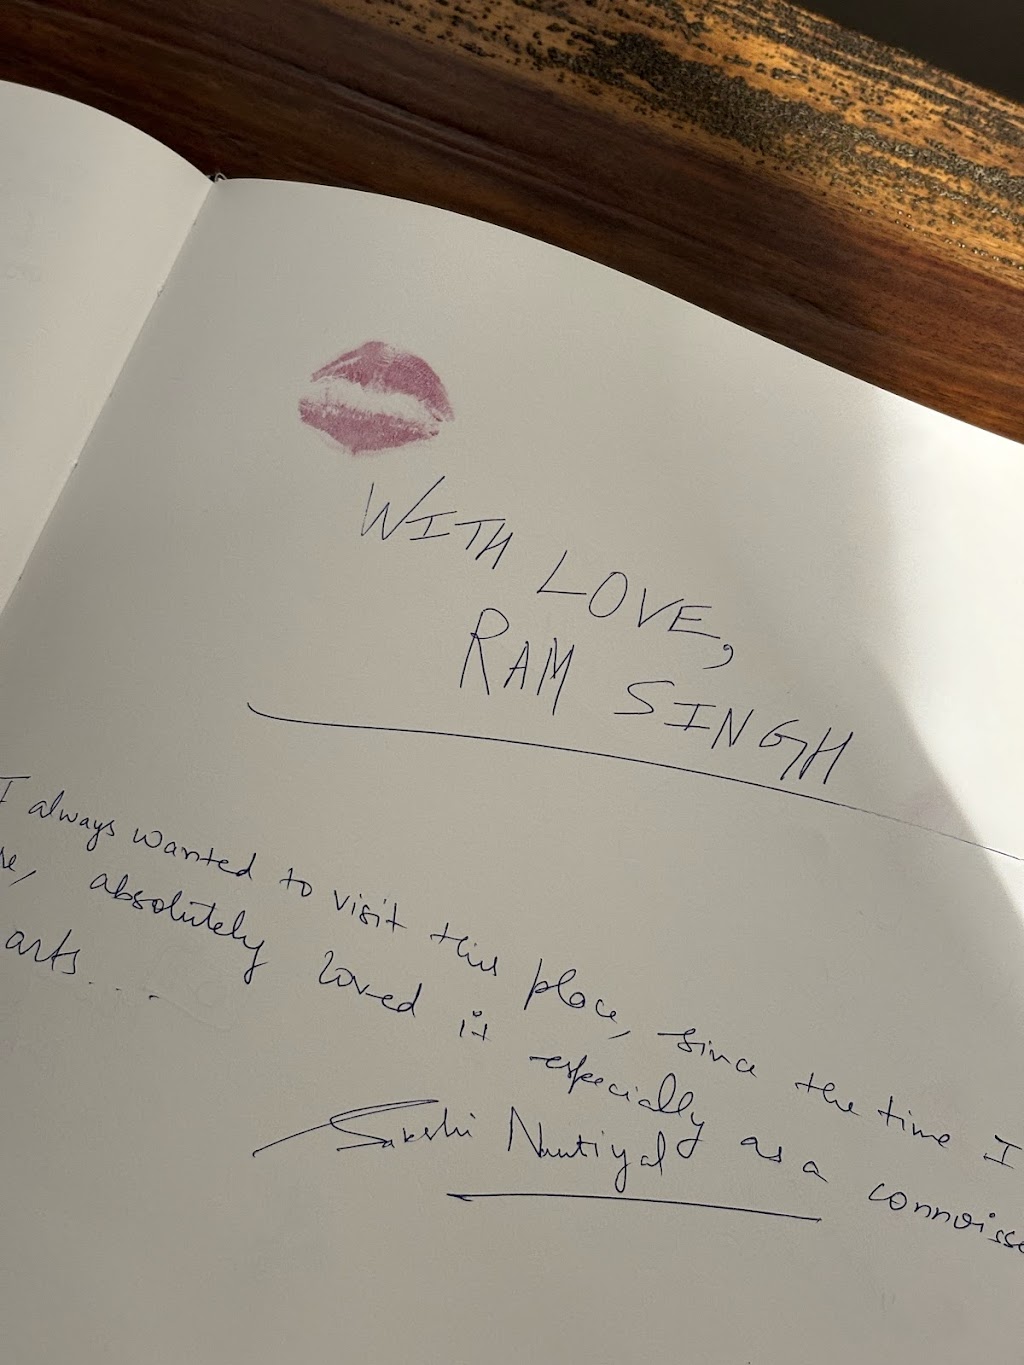 WITH LOVE,
RAM SINGH
I always wanted to visit this place, since the time I
absolutely loved it especially as a connoisse
arts....
Sakshi Nautiyal